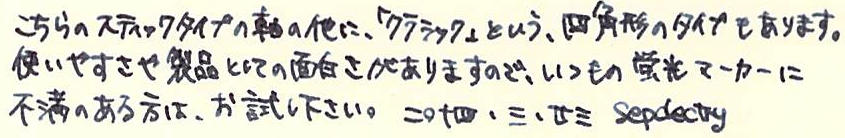 こちらのスティックタイプの軸の他に、「クラシック」という、四角形のタイプもあります。
使いやすさや製品としての面白さがありますので、いつもの蛍光マーカーに
不満のある方は、お試し下さい。 二〇十四・三・廿三 Sepdectry